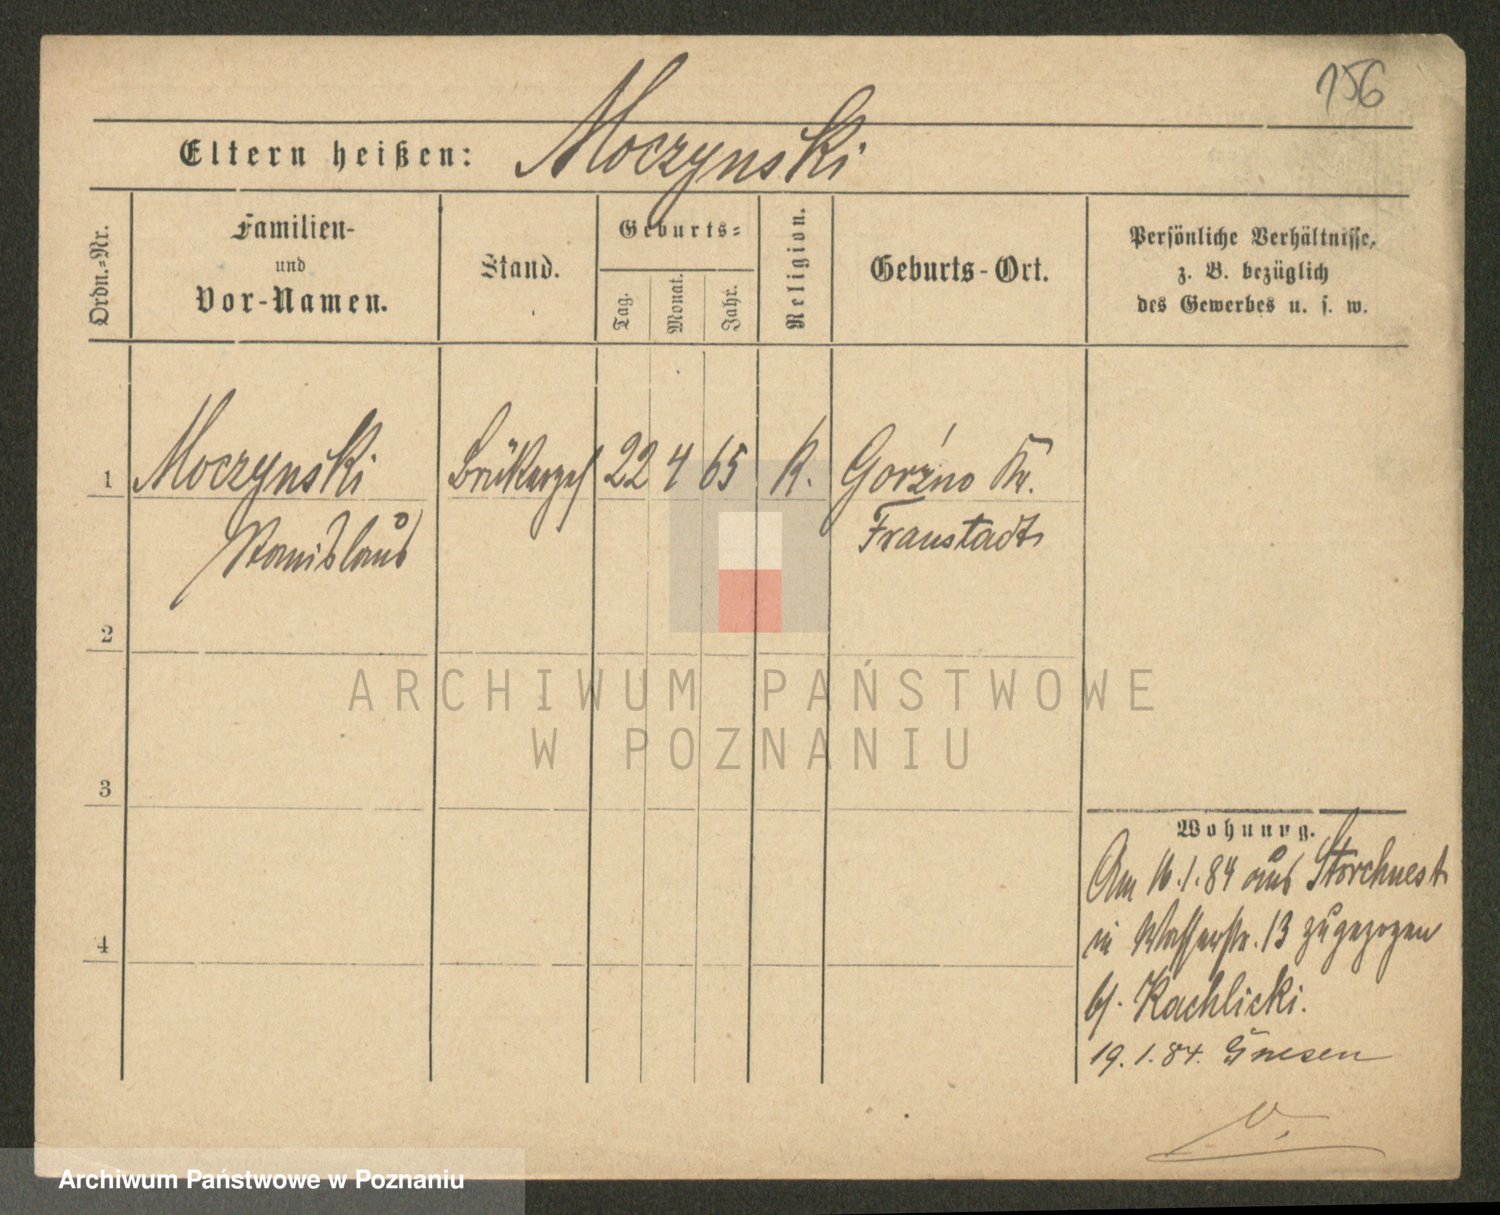 156
Eltern heißen: Moczynski
Ordn.-Nr.
Familien-
und
Vor-Namen.
Stand.
Geburts-
Tag.
Monat.
Jahr.
Religion.
Geburts-Ort.
Persönliche Verhältnisse,
z. B. bezüglich
des Gewerbes u. s. w.
1 Moczynski 22 4 65 K. Gorźno Kr.
Stanislaus Fraustadt
2
ARCHIWUM PAŃSTWOWE
W POZNANIU
3
Wohnung.
Am 16.1.84 aus Storchnest
in Wasserstr. 13 zugezogen
4
b/. Kachlicki.
19.1.84. Gnesen
Archiwum Państwowe w Poznaniu